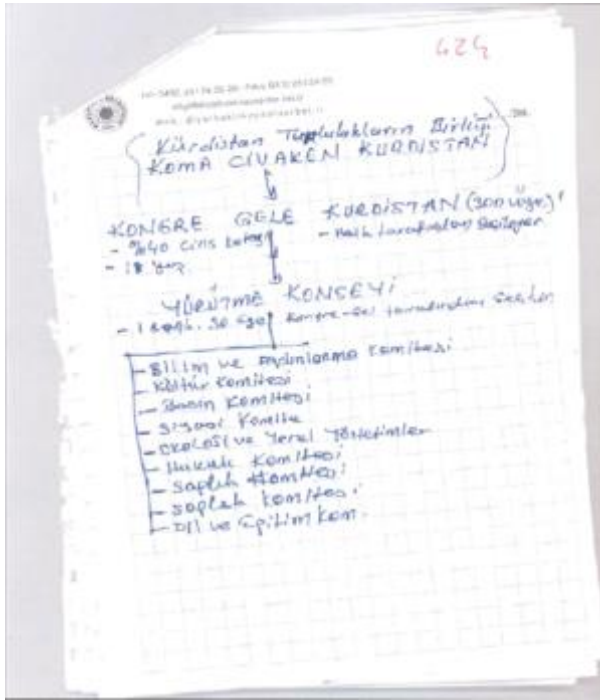 424
Kürdistan Toplulukların Birliği
KOMA CIVAKEN KURDISTAN
KONGRE GELE KURDISTAN (300 üye)
- %40 cins kotası - Halk tarafından seçilen
- 18 yaş
YÜRÜTME KONSEYİ
- 1 başk. 30 üye Kongre-Gel tarafından seçilen
- Bilim ve Aydınlanma Komitesi
- Kültür Komitesi
- Basın Komitesi
- Siyasi Komite
- Ekoloji ve Yerel Yönetimler
- Hukuk Komitesi
- Sağlık Komitesi
- Sağlık Komitesi
- Dil ve Eğitim Kom.